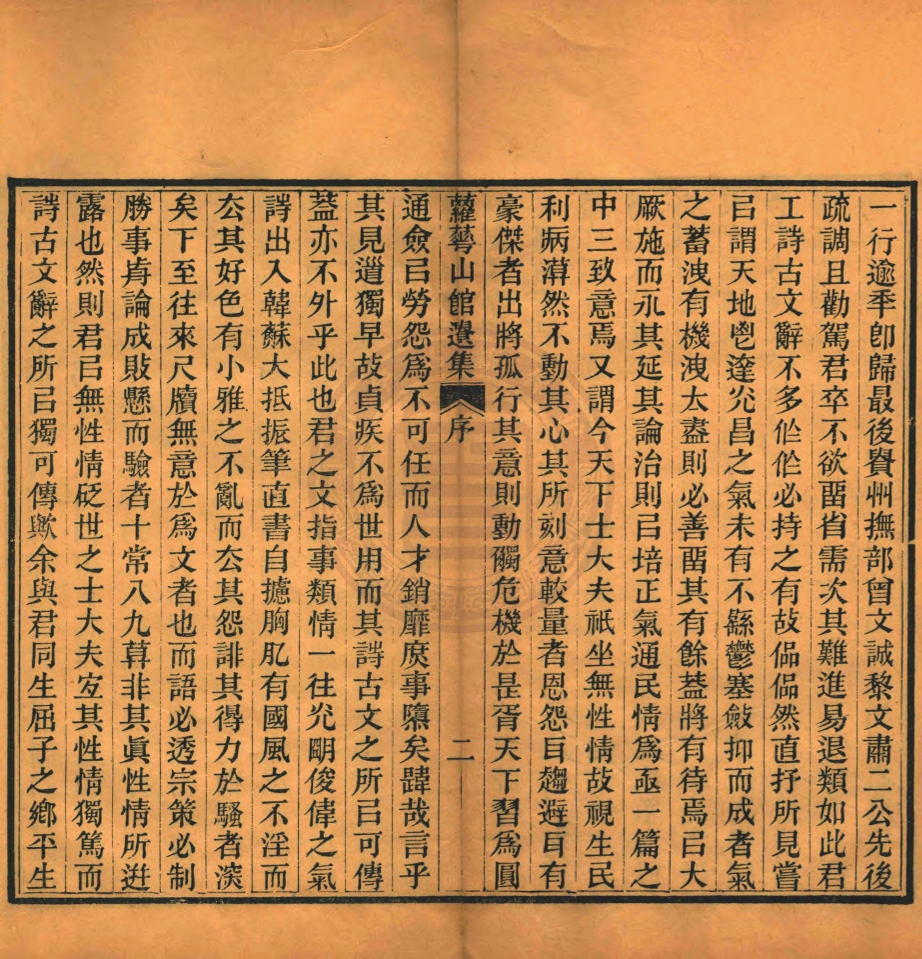 一行逾秊卽歸最後貴州撫部曾文誠黎文肅二公先後
疏調且勸駕君卒不欲畱省需次其難進易退類如此君
工詩古文辭不多作作必持之有故偘偘然直抒所見嘗
㠯謂天地鬯達光昌之氣未有不繇鬱塞斂抑而成者氣
之蓄洩有機洩太盡則必善畱其有餘葢將有待焉㠯大
厥施而永其延其論治則㠯培正氣通民情爲亟一篇之
中三致意焉又謂今天下士大夫祇坐無性情故視生民
利病漠然不動其心其所刻意較量者恩怨耳趨避耳有
豪傑者出將孤行其意則動觸危機於是胥天下習爲圓
蘿蕚山館遺集 序 二
通僉㠯勞怨爲不可任而人才銷靡庶事隳矣韙哉言乎
其見道獨早故貞疾不爲世用而其詩古文之所㠯可傳
葢亦不外乎此也君之文指事類情一往光明俊偉之氣
詩出入韓蘇大抵振筆直書自攄胸肊有國風之不淫而
去其好色有小雅之不亂而去其怨誹其得力於騷者深
矣下至往來尺牘無意於爲文者也而語必透宗策必制
勝事前論成敗懸而驗者十常八九莫非其眞性情所迸
露也然則君㠯無性情砭世之士大夫宜其性情獨篤而
詩古文辭之所㠯獨可傳歟余與君同生屈子之鄉平生